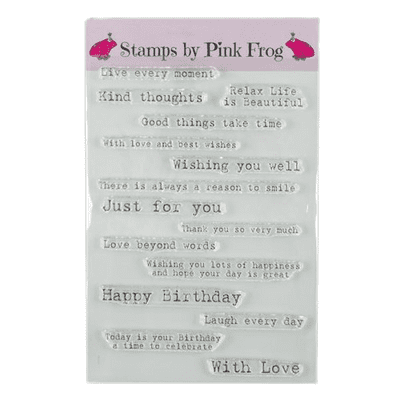 Stamps by Pink Frog
Live every moment
Kind thoughts
Relax Life
is Beautiful
Good things take time
With love and best wishes
Wishing you well
There is always a reason to smile
Just for you
Thank you so very much
Love beyond words
Wishing you lots of happiness
and hope your day is great
Happy Birthday
Laugh every day
Today is your Birthday
a time to celebrate
With Love